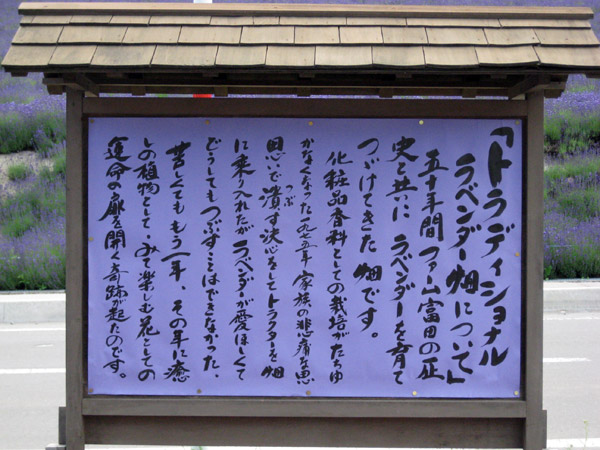 「トラディショナル
ラベンダー畑について」
五十年間ファーム富田の歴
史と共に ラベンダーを育て
つづけてきた畑です。
化粧品香料としての栽培がたちゆ
かなくなった一九七五年 家族の悲痛な思
思いで潰す決心をしてトラクターを畑
つぶ
に乗り入れたが ラベンダーが愛ほしくて
どうしてもつぶすことはできなかった、
苦しくてももう一年、その年に癒
しの植物として、みて楽しむ花としての
運命の扉を開く奇跡が起たのです。